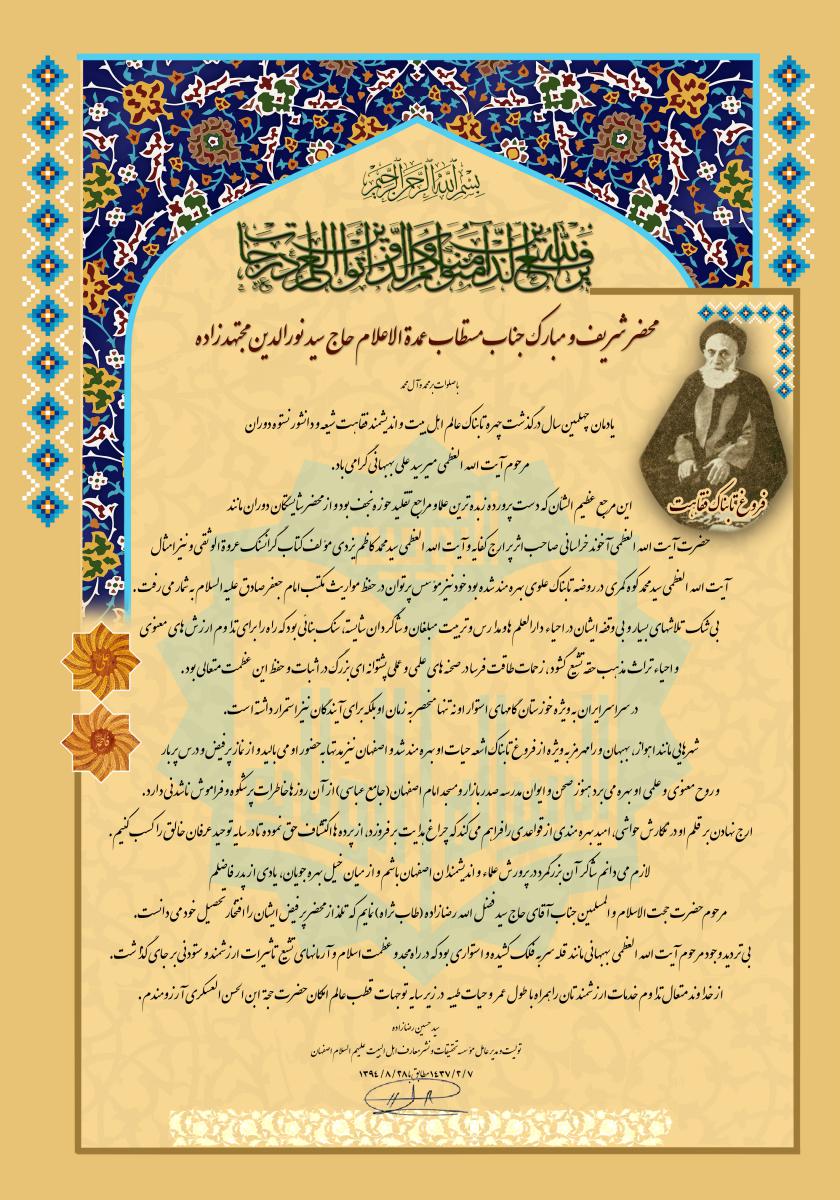 بسم الله الرحمن الرحیم
یرفع الله الذین آمنوا منکم و الذین اوتوا العلم درجات
محضر شریف و مبارک جناب مستطاب عمدة الاعلام حاج سید نورالدین مجتهدزاده
با صلوات بر محمد و آل محمد
یادمان چهلمین سال درگذشت چهره تابناک عالم اهل بیت و اندیشمند فقاهت شیعه و دانشور نستوه دوران
مرحوم آیت الله العظمی میر سید علی بهبهانی گرامی باد.
فروغ تابناک فقاهت
این مرجع عظیم الشأن که دست پرورده زبده ترین علما و مراجع تقلید حوزه نجف بود و از محضر شایستگان دوران مانند
حضرت آیت الله العظمی آخوند خراسانی صاحب اثر پر ارج کفایه و آیت الله العظمی سید محمد کاظم یزدی مؤلف کتاب گرانسنگ عروة الوثقی و نیز امثال
آیت الله العظمی سید محمد کوه کمری در روضه تابناک علوی بهره مند شده بود خود نیز مؤسس پرتوان در حفظ مواریث مکتب امام جعفر صادق علیه السلام به شمار می رفت.
بی شک تلاشهای بسیار و بی وقفه ایشان در احیاء دارالعلم ها و مدارس و تربیت مبلغان و شاگردان شایسته، سنگ بنائی بود که راه را برای تداوم ارزش های معنوی
و احیاء تراث مذهب حقه تشیع گشود، زحمات طاقت فرسا در صحنه های علمی و عملی پشتوانه ای بزرگ در اثبات و حفظ این عظمت متعالی بود.
در سراسر ایران به ویژه خوزستان گامهای استوار او نه تنها منحصر به زمان او بلکه برای آیندگان نیز استمرار داشته است.
شهرهایی مانند اهواز، بهبهان و رامهرمز به ویژه از فروغ تابناک اشعه حیات او بهره مند شد و اصفهان نیز مدتها به حضور او می بالید و از نماز پر فیض و درس پربار
و روح معنوی و علمی او بهره می برد هنوز صحن و ایوان مدرسه صدر بازار و مسجد امام اصفهان (جامع عباسی) از آن روزها خاطرات پرشکوه و فراموش ناشدنی دارد.
ارج نهادن بر قلم او در نگارش حواشی، امید بهره مندی از قواعدی را فراهم می کند که چراغ هدایت بر فروزد، از پرده ها اکتشاف حق نموده تا در سایه توحید عرفان خالق را کسب کنیم.
لازم می دانم شاکر آن بزرگمرد در پرورش علماء و اندیشمندان اصفهان باشم و از میان خیل بهره جویان، یادی از پدر فاضلم
مرحوم حضرت حجت الاسلام و المسلمین جناب آقای حاج سید فضل الله رضازاده (طاب ثراه) نمایم که تلمذ از محضر پر فیض ایشان را افتخار تحصیل خود می دانست.
بی تردید وجود مرحوم آیت الله العظمی بهبهانی مانند قله سر به فلک کشیده و استواری بود که در راه مجد و عظمت اسلام و آرمانهای تشیع تأثیرات ارزشمند و ستودنی بر جای گذاشت.
از خداوند متعال تداوم خدمات ارزشمندتان را همراه با طول عمر و حیات طیبه در زیر سایه توجهات قطب عالم امکان حضرت حجة ابن الحسن العسکری آرزومندم.
سید حسین رضازاده
تولیت و مدیر عامل مؤسسه تحقیقات و نشر معارف اهل البیت علیهم السلام اصفهان
۱۴۳۷/۲/۷ مطابق با ۱۳۹۴/۸/۲۸